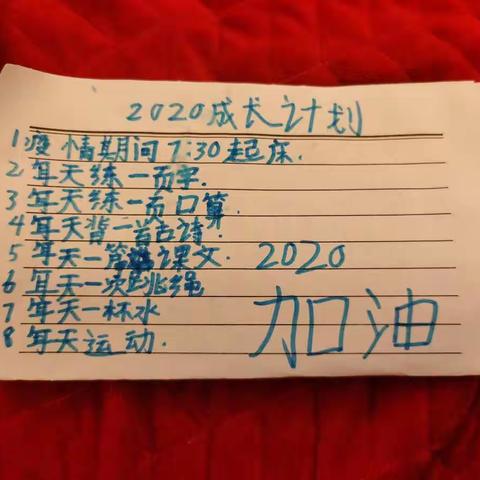 2020成长计划
1疫情期间7:30起床.
2每天练一页字.
3每天练一页口算.
4每天背一首古诗.
5每天一篇课文.
6每天一次跳绳
7每天一杯水
8每天运动.
2020
加油